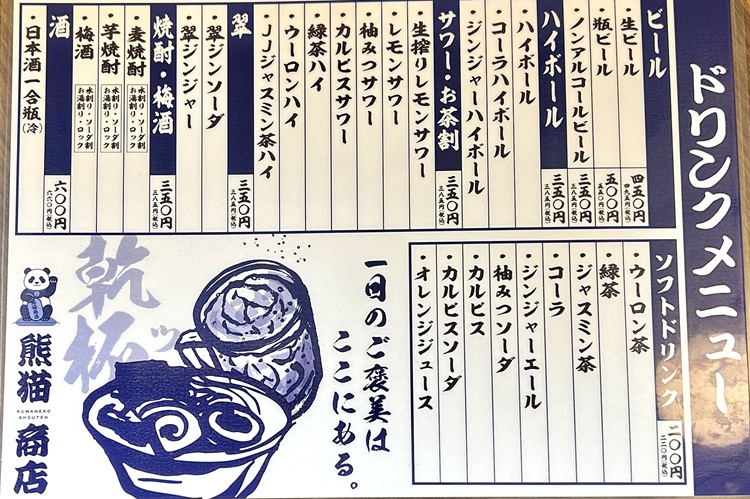 ドリンクメニュー
ビール
・生ビール 四五〇円 四九五円(税込)
・瓶ビール 五〇〇円 五五〇円(税込)
・ノンアルコールビール 三五〇円 三八五円(税込)
ハイボール 三五〇円 三八五円(税込)
・ハイボール
・コーラハイボール
・ジンジャーハイボール
サワー・お茶割 三五〇円 三八五円(税込)
・生搾りレモンサワー
・レモンサワー
・柚みつサワー
・カルピスサワー
・緑茶ハイ
・ウーロンハイ
・JJジャスミン茶ハイ
翠 三五〇円 三八五円(税込)
・翠ジンソーダ
・翠ジンジャー
焼酎・梅酒 三五〇円 三八五円(税込)
・麦焼酎 水割り・ソーダ割 お湯割り・ロック
・芋焼酎 水割り・ソーダ割 お湯割り・ロック
・梅酒 水割り・ソーダ割 お湯割り・ロック
酒 六〇〇円 六六〇円(税込)
・日本酒一合瓶(冷)
ソフトドリンク 二〇〇円 二二〇円(税込)
・ウーロン茶
・緑茶
・ジャスミン茶
・コーラ
・ジンジャーエール
・柚みつソーダ
・カルピス
・カルピスソーダ
・オレンジジュース
一日のご褒美は
ここにある。
乾杯ッ
熊猫商店
KUMANEKO
SHOUTEN